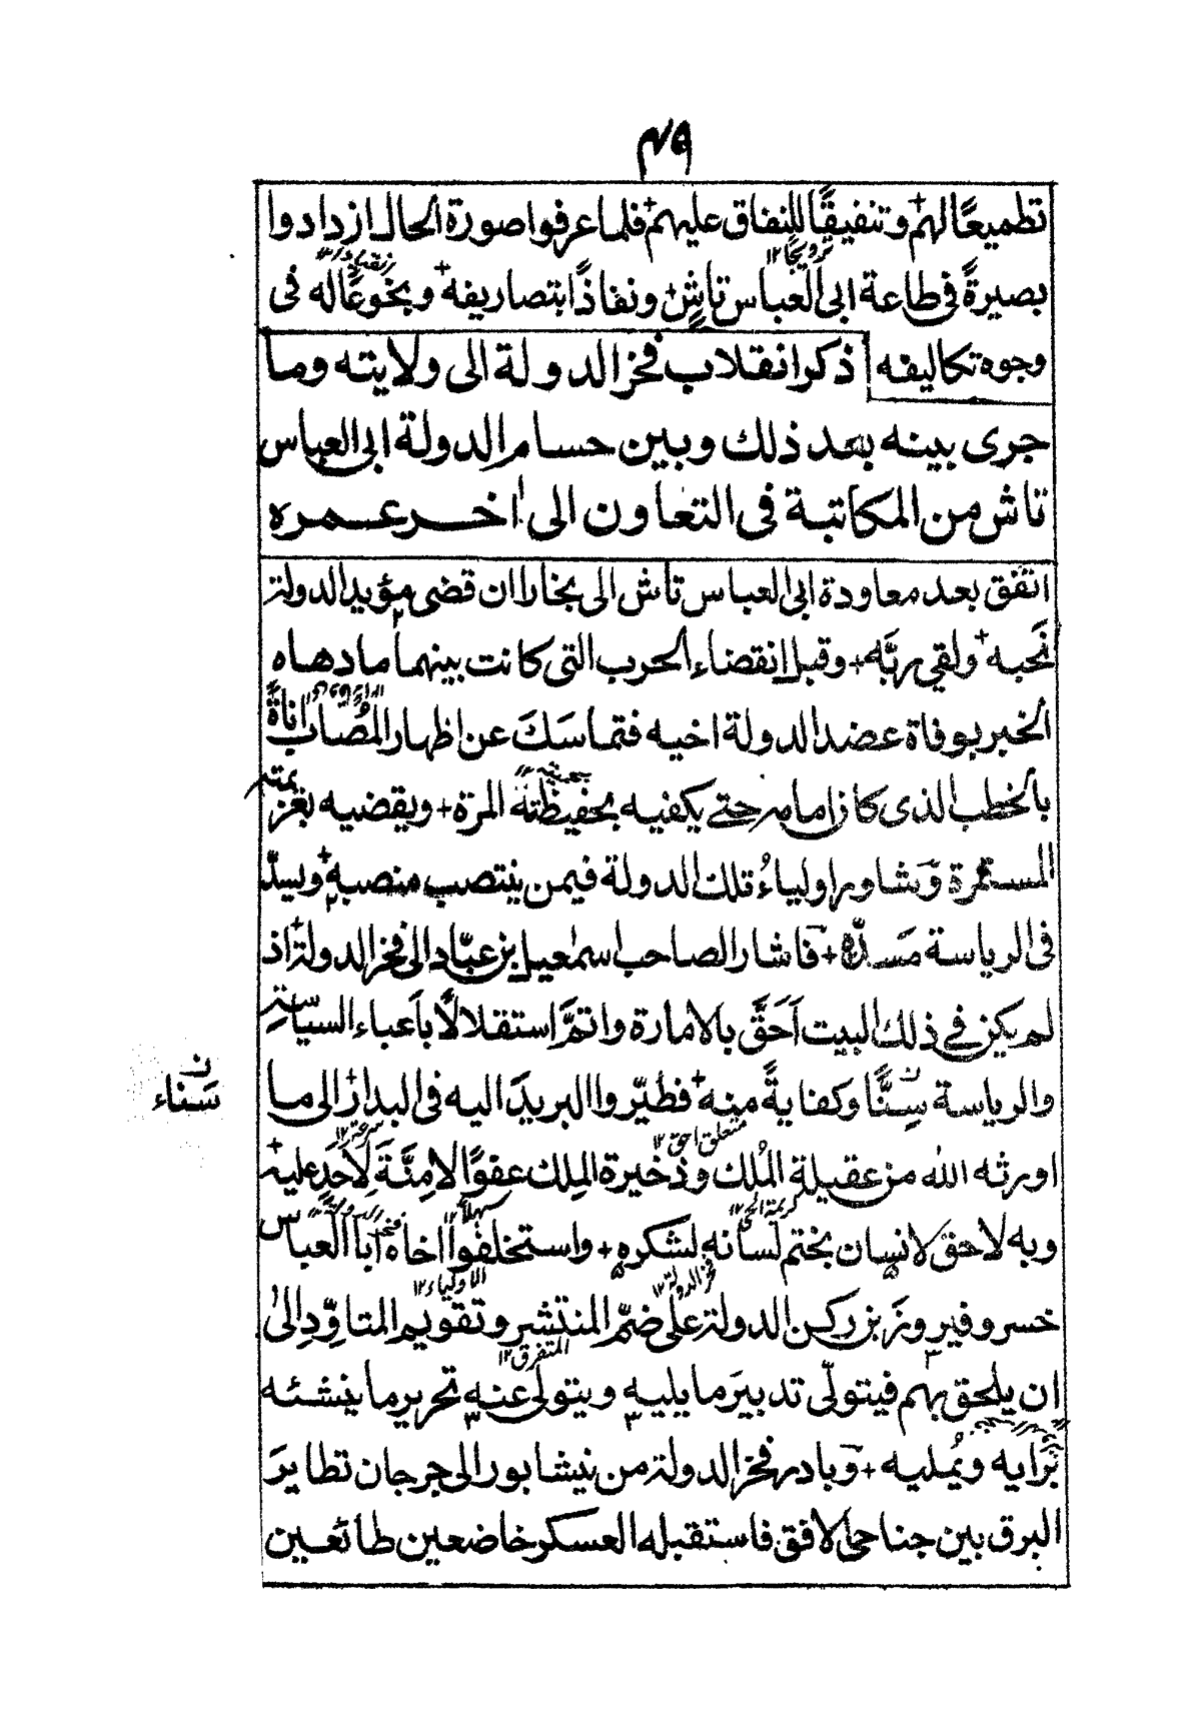 ٧٩
تطميعًا لهم وتنفيقًا للنفاق عليهم فلما عرفوا صورة الحال ازدادوا
ترويجًا ١٢
بصيرةً في طاعة ابى العباس تاش ونفاذًا بتصاريفه وبخوعًا له فى
وجوه تكاليفه ذكر انقلاب فخر الدولة الى ولايته وما
جرى بينه بعد ذلك وبين حسام الدولة ابى العباس
تاش من المكاتبة فى التعاون الى اخر عمره
اتفق بعد معاودة ابى العباس تاش الى بخارا ان قضى مؤيد الدولة
نَحبه ولقي ربَّه وقبل انقضاء الحرب التى كانت بينهما ما دهاه
الخبر بوفاة عضد الدولة اخيه فتماسَكَ عن اظهار المُصَاب اناةً
بالخطب الذى كان امامه حتے يكفيه بحفيظته المرة ويقضيه بعزيمته
المستمرة وتشاور اولياءُ تلك الدولة فيمن ينتصب منصبه ويسدّ
فى الرياسة مَسدّه فاشار الصاحب اسمٰعيل بن عبّاد الى فخر الدولة اذ
لم يكن في ذلك البيت اَحَقَّ بالامارة واتمَّ استقلالًا باَعباء السياسة
والرياسة سِنًّا وكفايةً منه فطيّروا البريدَ اليه فى البدار الى ما
ن
سَناء
متعلق احق ١٢
سرعة ١٢
اورثه الله من عقيلة المُلك وذخيرة المِلك عفوًا لا مِنَّةَ لِاَحدٍ عليه
كريمة الحى ١٢
سهلًا ١٢
وبه لا حق لانسان يختم لسانه لشكره واستخلفوا اخاه ابا العباس
فخر الدولة ١٢
الاولياء ١٢
خسرو فيروزَ بن ركن الدولة على ضمّ المنتشر وتقويم المتاوِّدِ الىٰ
المتفرق ١٢
ان يلحق بهم فيتولّى تدبيرَ ما يليه ويتولى عنه تحرير ما ينشئه
برَايه ويُمليه وبادر فخر الدولة من نيشابور الى جرجان تطايرَ
البرق بين جناحى الافق فاستقبله العسكر خاضعين طائعين